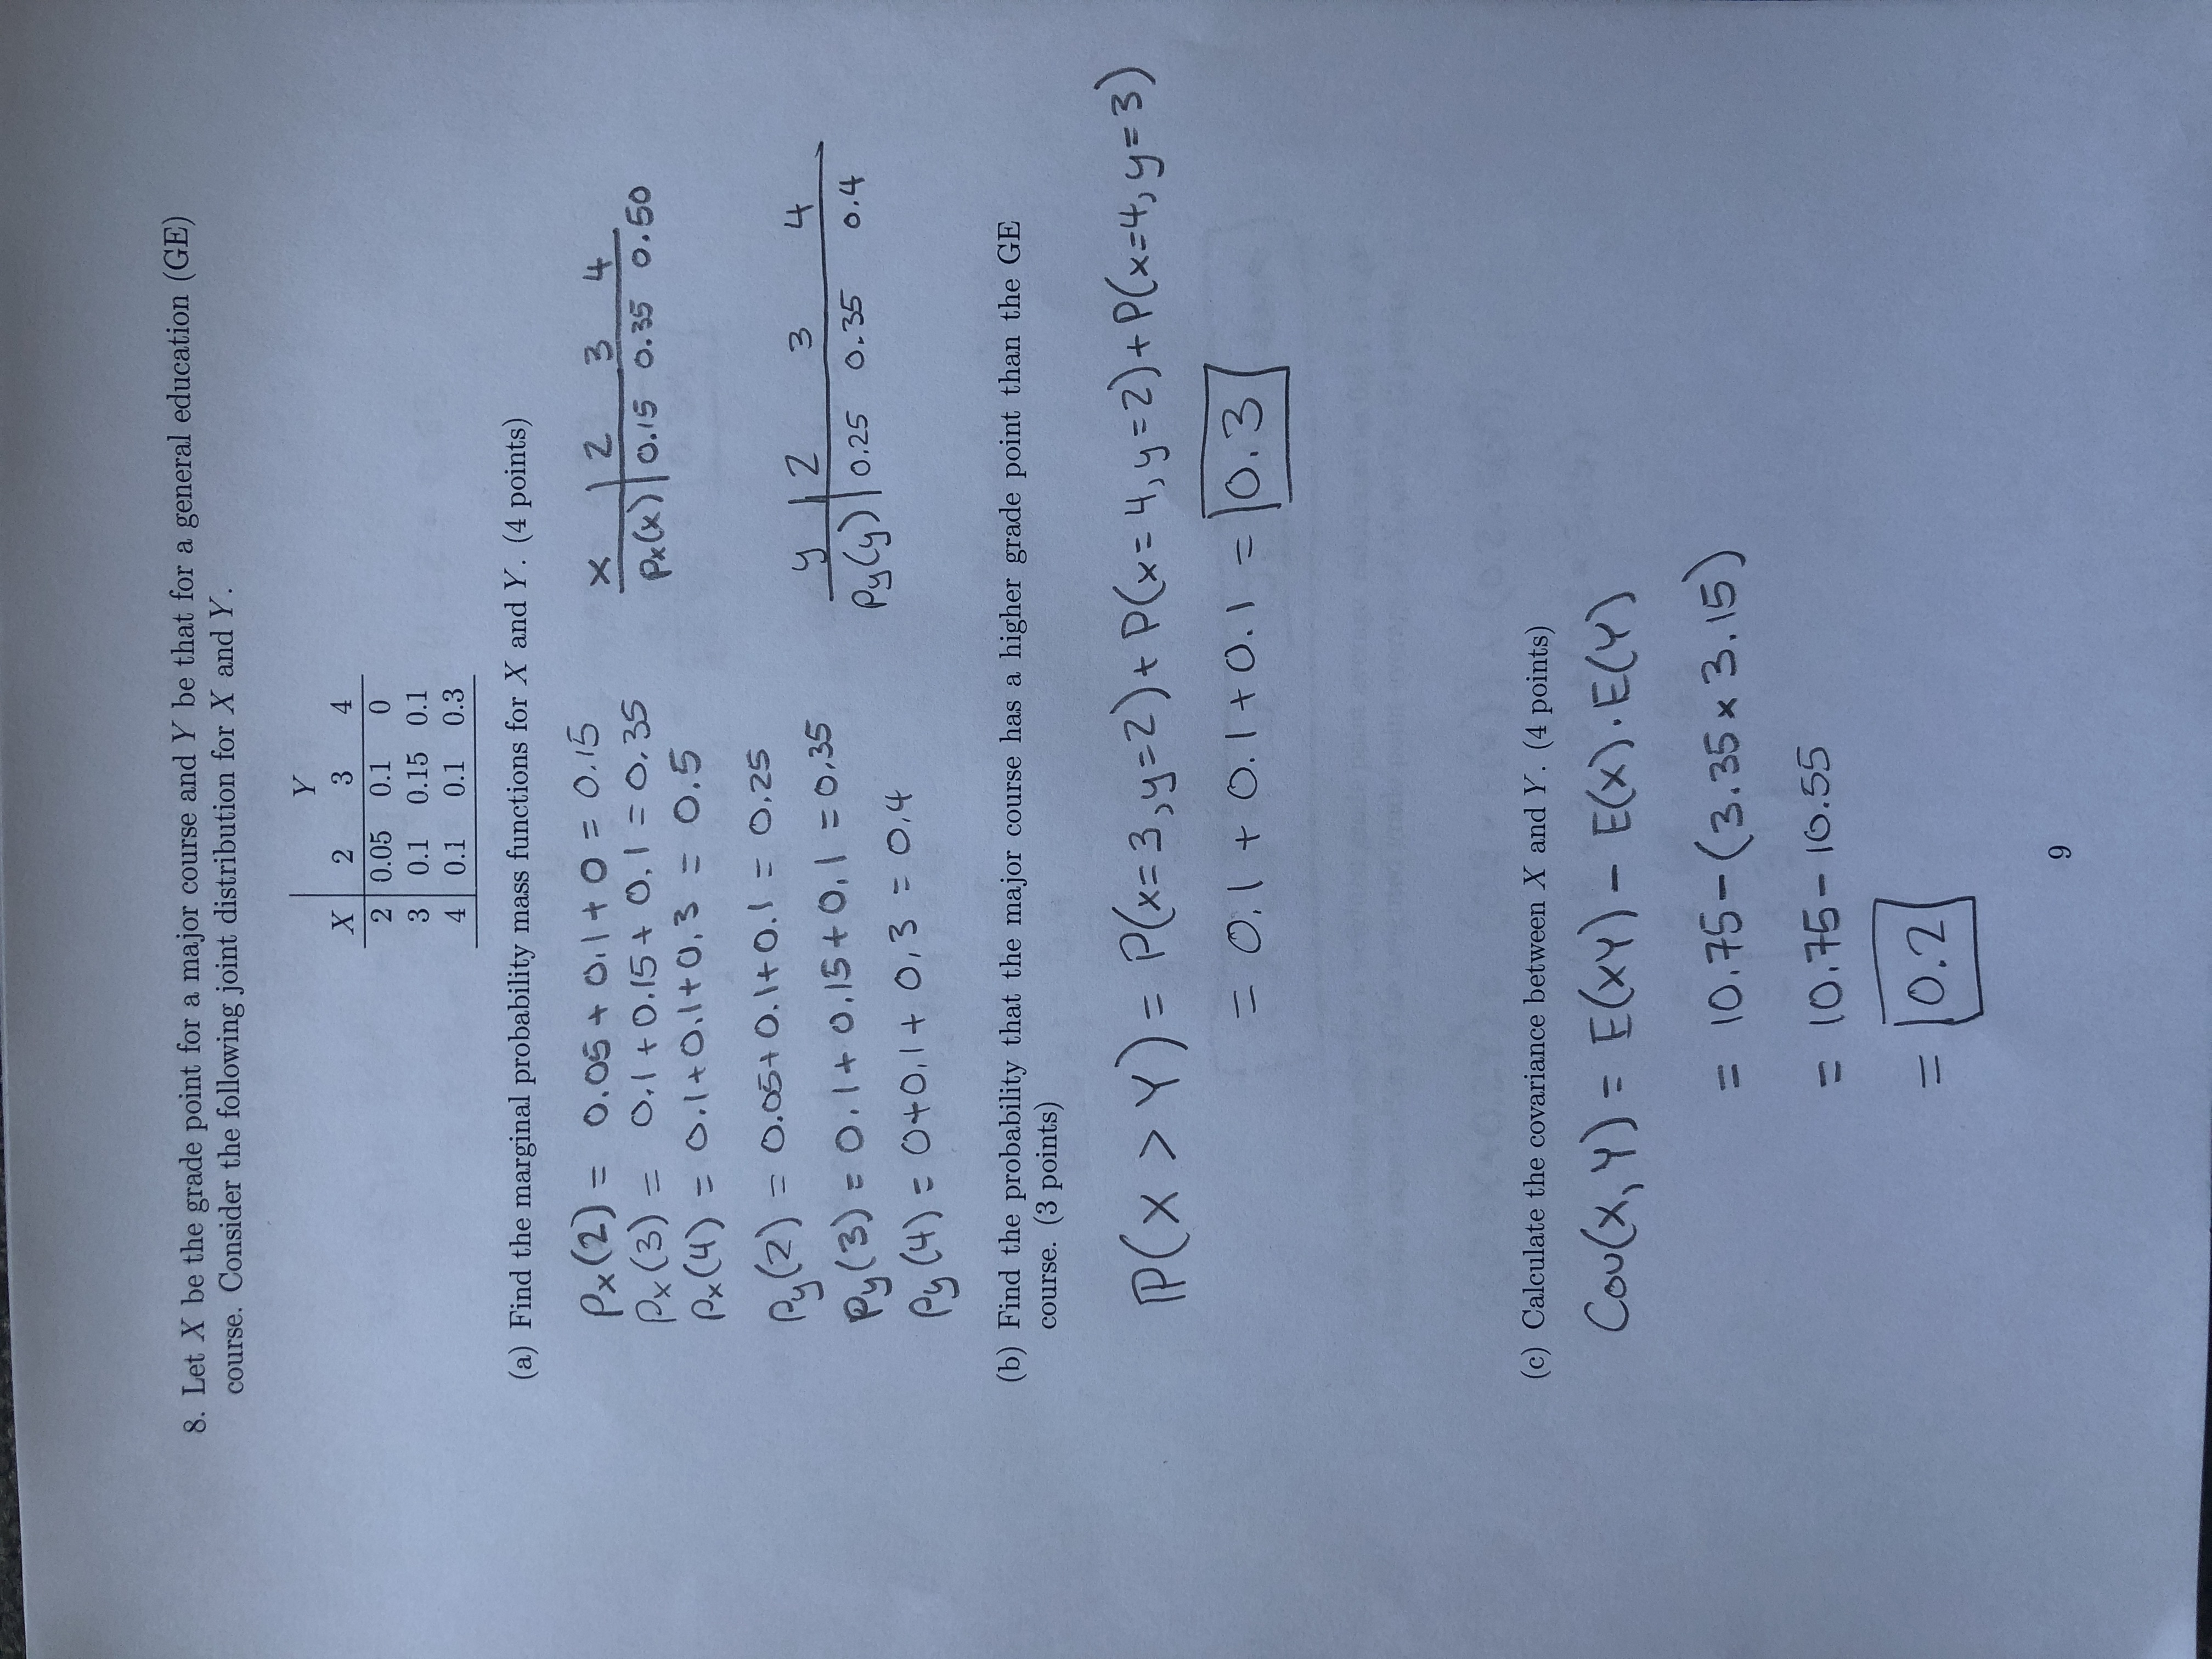 8. Let X be the grade point for a major course and Y be that for a general education (GE)
course. Consider the following joint distribution for X and Y.
Y
X 2 3 4
2 0.05 0.1 0
3 0.1 0.15 0.1
4 0.1 0.1 0.3
(a) Find the marginal probability mass functions for X and Y. (4 points)
Px(2) = 0.05 + 0.1 + 0 = 0.15
Px(3) = 0.1 + 0.15 + 0.1 = 0.35
Px(4) = 0.1 + 0.1 + 0.3 = 0.5
x 2 3 4
Px(x) 0.15 0.35 0.50
Py(2) = 0.05 + 0.1 + 0.1 = 0.25
Py(3) = 0.1 + 0.15 + 0.1 = 0.35
Py(4) = 0 + 0.1 + 0.3 = 0.4
y 2 3 4
Py(y) 0.25 0.35 0.4
(b) Find the probability that the major course has a higher grade point than the GE
course. (3 points)
P(X > Y) = P(x=3, y=2) + P(x=4, y=2) + P(x=4, y=3)
= 0.1 + 0.1 + 0.1 = 0.3
(c) Calculate the covariance between X and Y. (4 points)
Cov(X, Y) = E(XY) - E(X) · E(Y)
= 10.75 - (3.35 × 3.15)
= 10.75 - 10.55
= 0.2
9